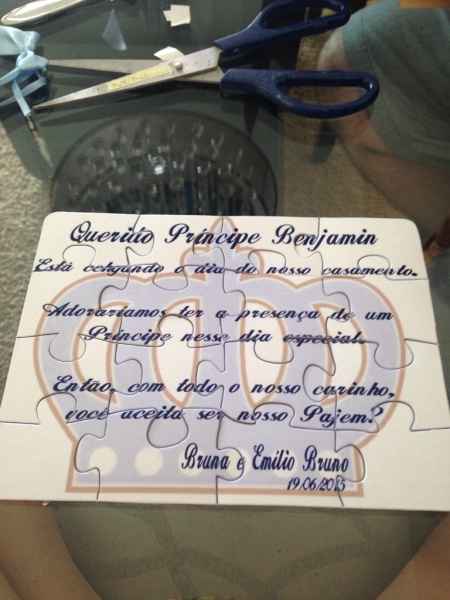 Querido Príncipe Benjamin
Está chegando o dia do nosso casamento.
Adoraríamos ter a presença de um
Príncipe nesse dia especial.
Então, com todo o nosso carinho,
você aceita ser nosso Pajem?
Bruna e Emílio Bruno
19.06/2015